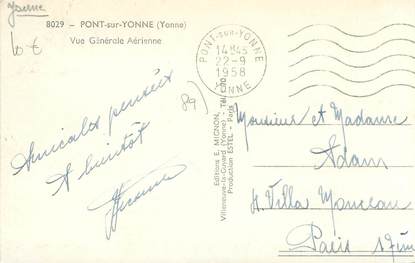 Yonne
8029 - PONT-sur-YONNE (Yonne)
Vue Générale Aérienne
10 €
PONT-sur-YONNE
14H45
22-9
1958
YONNE
89)
Amicales pensées
A bientôt
Editions E. MIGNON,
Villeneuve-la-Guyard (Yonne) - Tél.
Production ESTEL - Paris
Monsieur et Madame
Adam
4. Villa Monceau
Paris 17ème